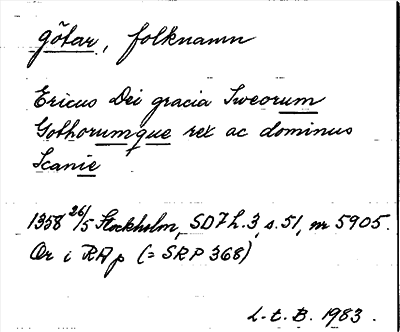 götar, folknamn
Ericus Dei gracia Sweorum
Gothorumque rex ac dominus
Scanie
1358 26/5 Stockholm, SD 7 h.3, s.51, nr 5905.
Or i RA p (= SRP 368)
L-E. B. 1983.